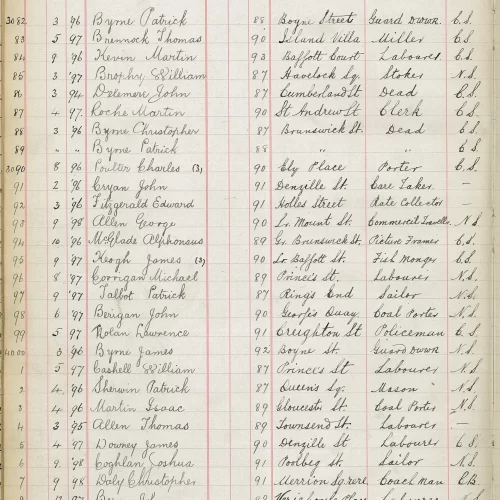 3082 3 96 Byrne Patrick 88 Boyne Street Guard D.W.W.R. C.S.
83 5 97 Brennock Thomas 90 Island Villa Miller C.S.
84 9 '96 Kevin Martin 93 Baffott Court Labourer C.S.
85 3 '97 Brophy William 87 Havelock Sq. Stoker N.S.
86 3 94 Delemere John 87 Cumberland St Dead C.S.
87 4 97. Roche Martin 90 St Andrew St Clerk C.S.
88 3 96 Byrne Christopher 87 Brunswick St. Dead C.S.
89 " " Byrne Patrick 88 " " C.S.
3090 8 96 Poulter Charles (3) 90 Ely Place Porter C.S.
91 2 '96 Cryan John 91 Denzille St. Care Taker —
92 3 '96 Fitzgerald Edward 91 Holles Street Rate Collector —
93 9 '98 Allen George 90 Lr. Mount St. Commercial Traveller N.S.
94 10 '96 McGlade Alphonsus 89 Gr. Brunswick St. Picture Framer C.S.
95 9 '97 Keogh James (3) 90 Lr Baffott St. Fish Monger C.S.
96 8 '97 Corrigan Michael 89 Prince's St. Labourer N.S.
97 9 '97 Talbot Patrick 87 Rings End Sailor N.S.
98 6 '97 Berigan John 90 George's Quay Coal Porter N.S.
99 5 97 Nolan Lawrence 91 Creighton St Policeman C.S.
4000 3 '96 Byrne James 92 Boyne St. Guard DWWR N.S.
1 5 '97 Cashell William 87 Prince's St Labourer N.S.
2 4 '96 Sherwin Patrick 87 Queen's Sq. Mason N.S.
3 4 96 Martin Isaac 89 Gloucester St. Coal Porter N.S.
4 3 '95 Allen Thomas 89 Townsend St. Labourer —
5 4 97 Downey James 90 Denzille St Labourer C.S.
6 9 '98 Coghlan Joshua 91 Poolbeg St. Sailor N.S.
7 9 98 Daly Christopher 91 Merrion Square Coach Man C.B.